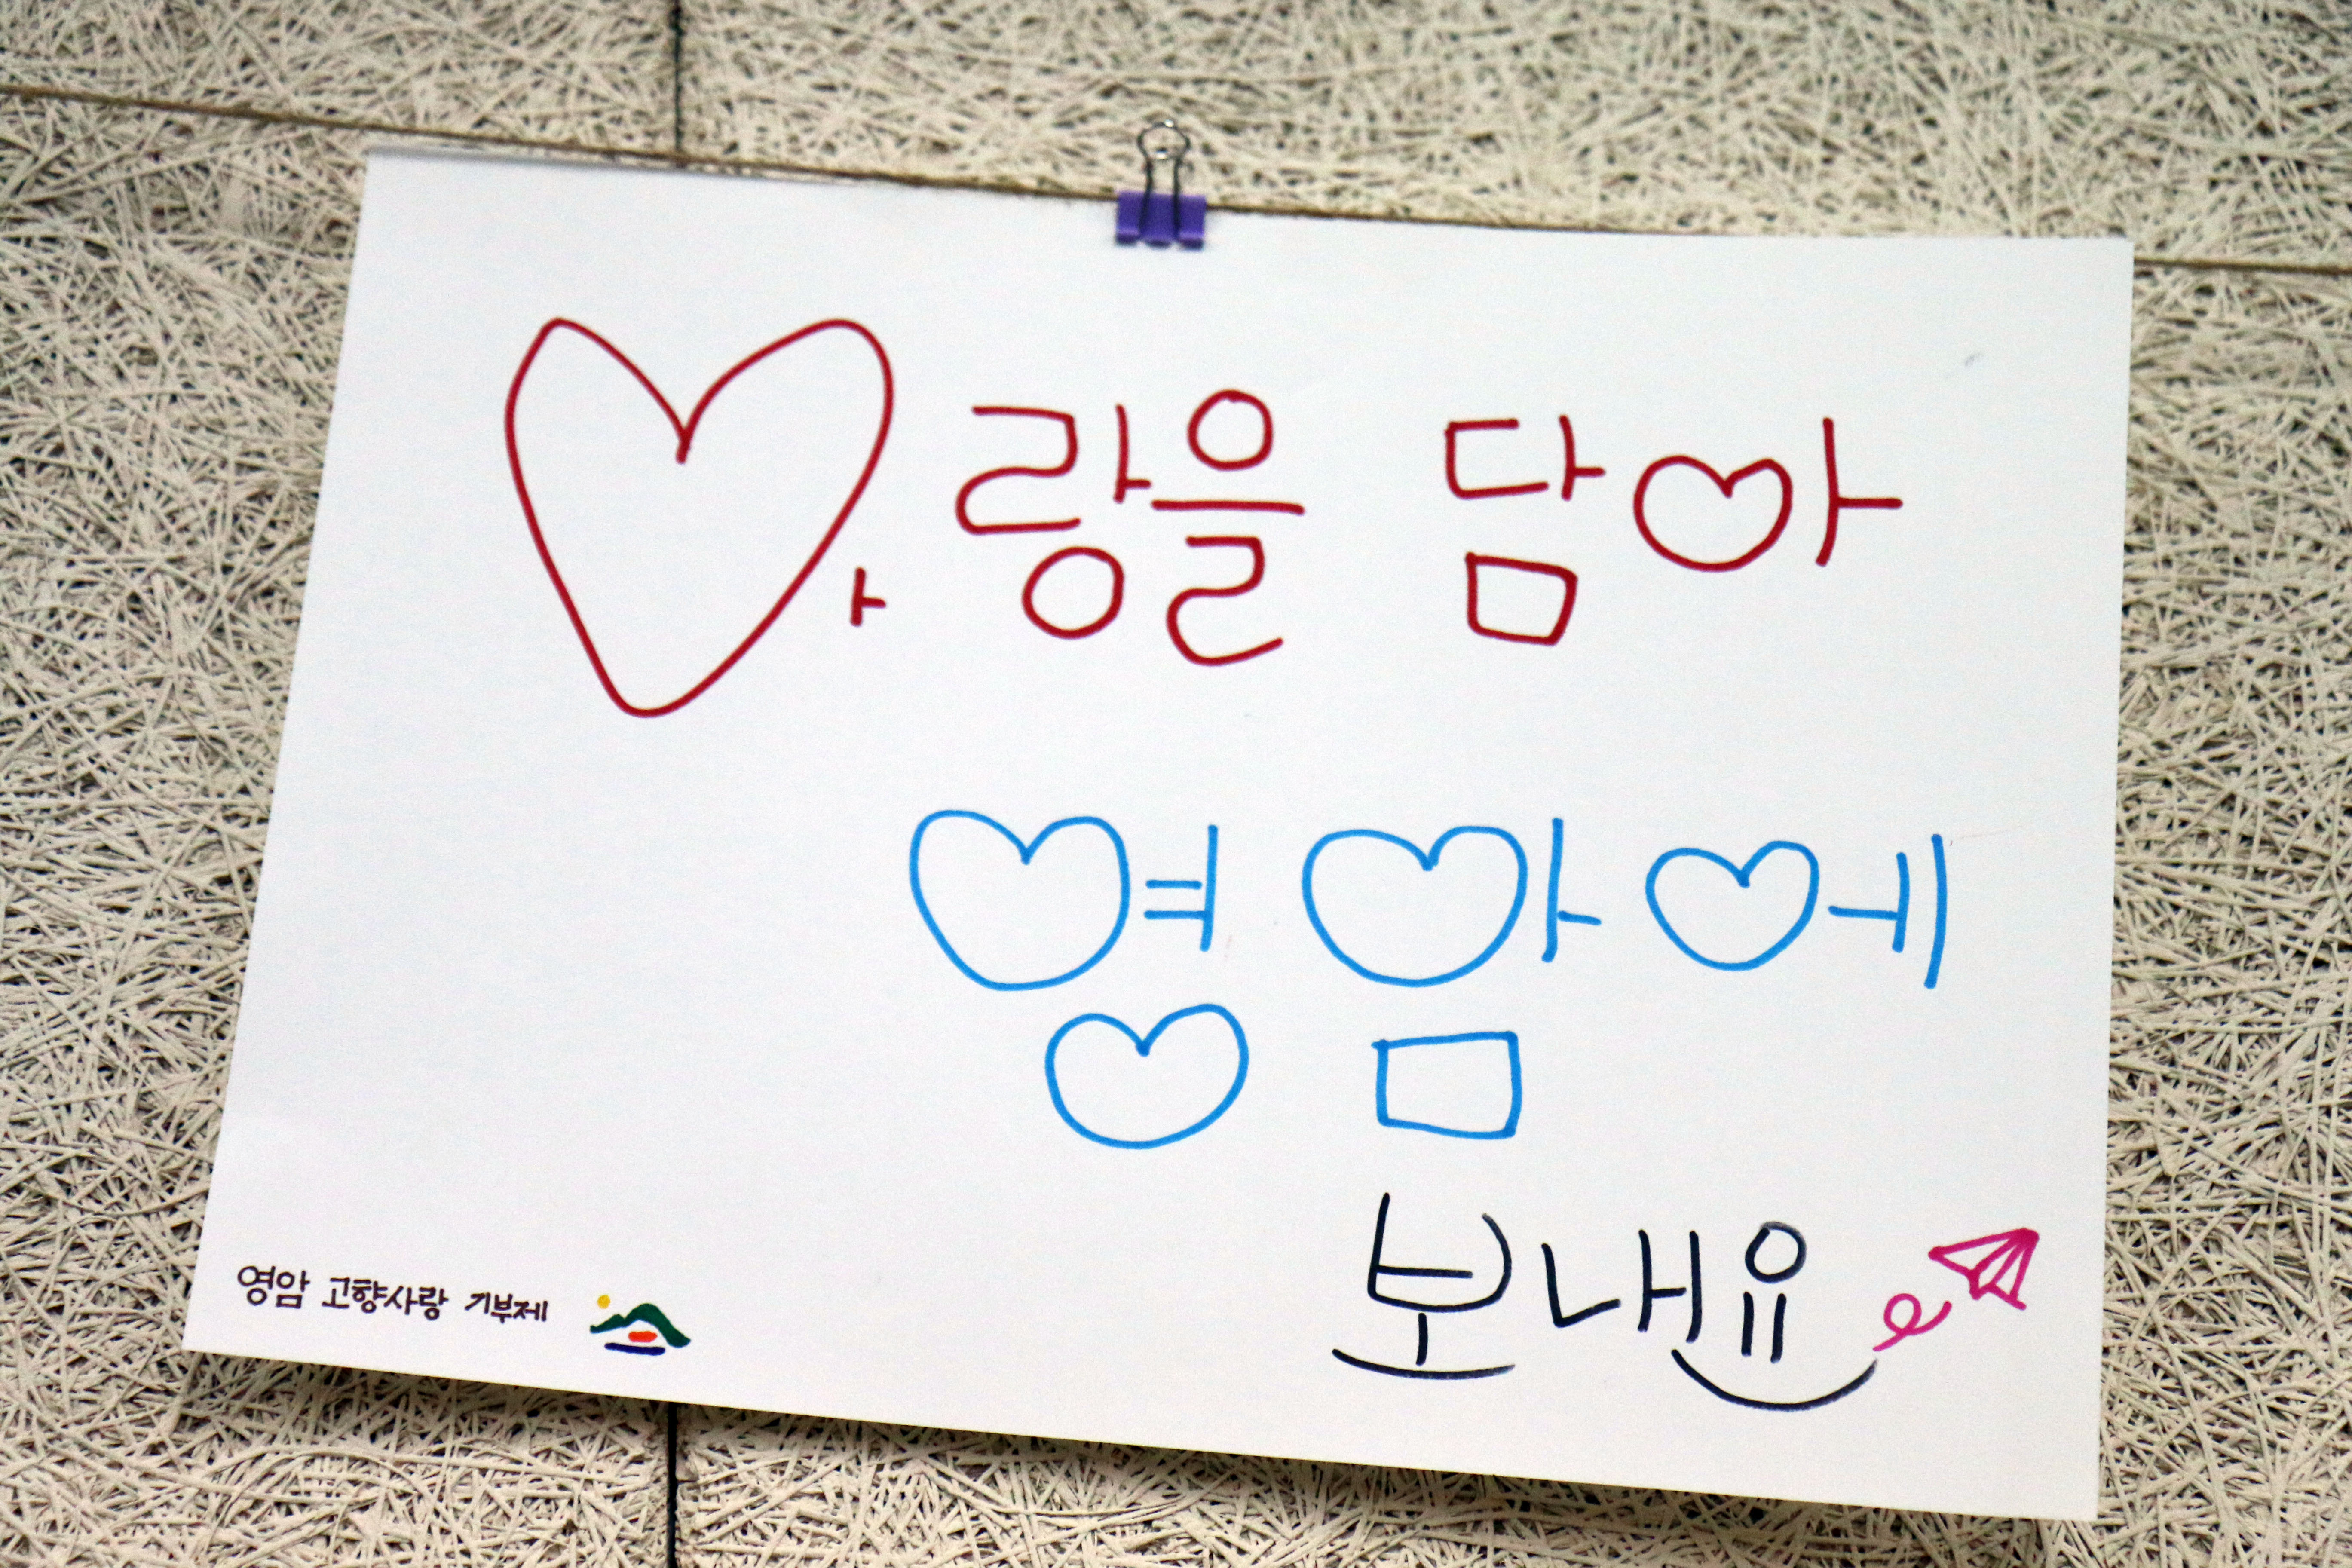 ♡ㅏ랑을 담아
영암에
보내유
영암 고향사랑 기부제